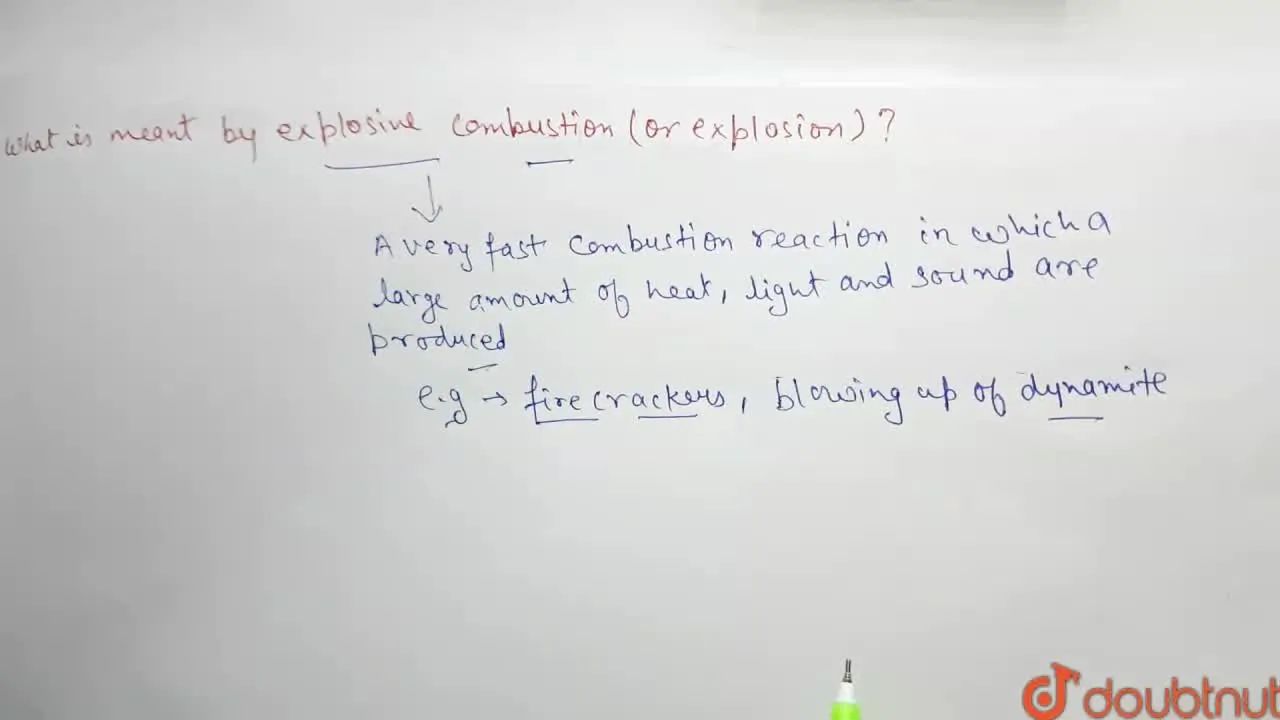 What is meant by explosive combustion (or explosion)?
A very fast combustion reaction in which a
large amount of heat, light and sound are
produced
e.g → firecrackers, blowing up of dynamite
doubtnut